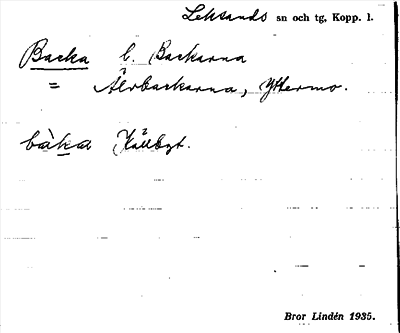 Leksands sn och tg, Kopp. l.
Backa l. Backarna
= Älvbackarna, Yttermo.
bàka Källbyt.
Bror Lindén 1935.